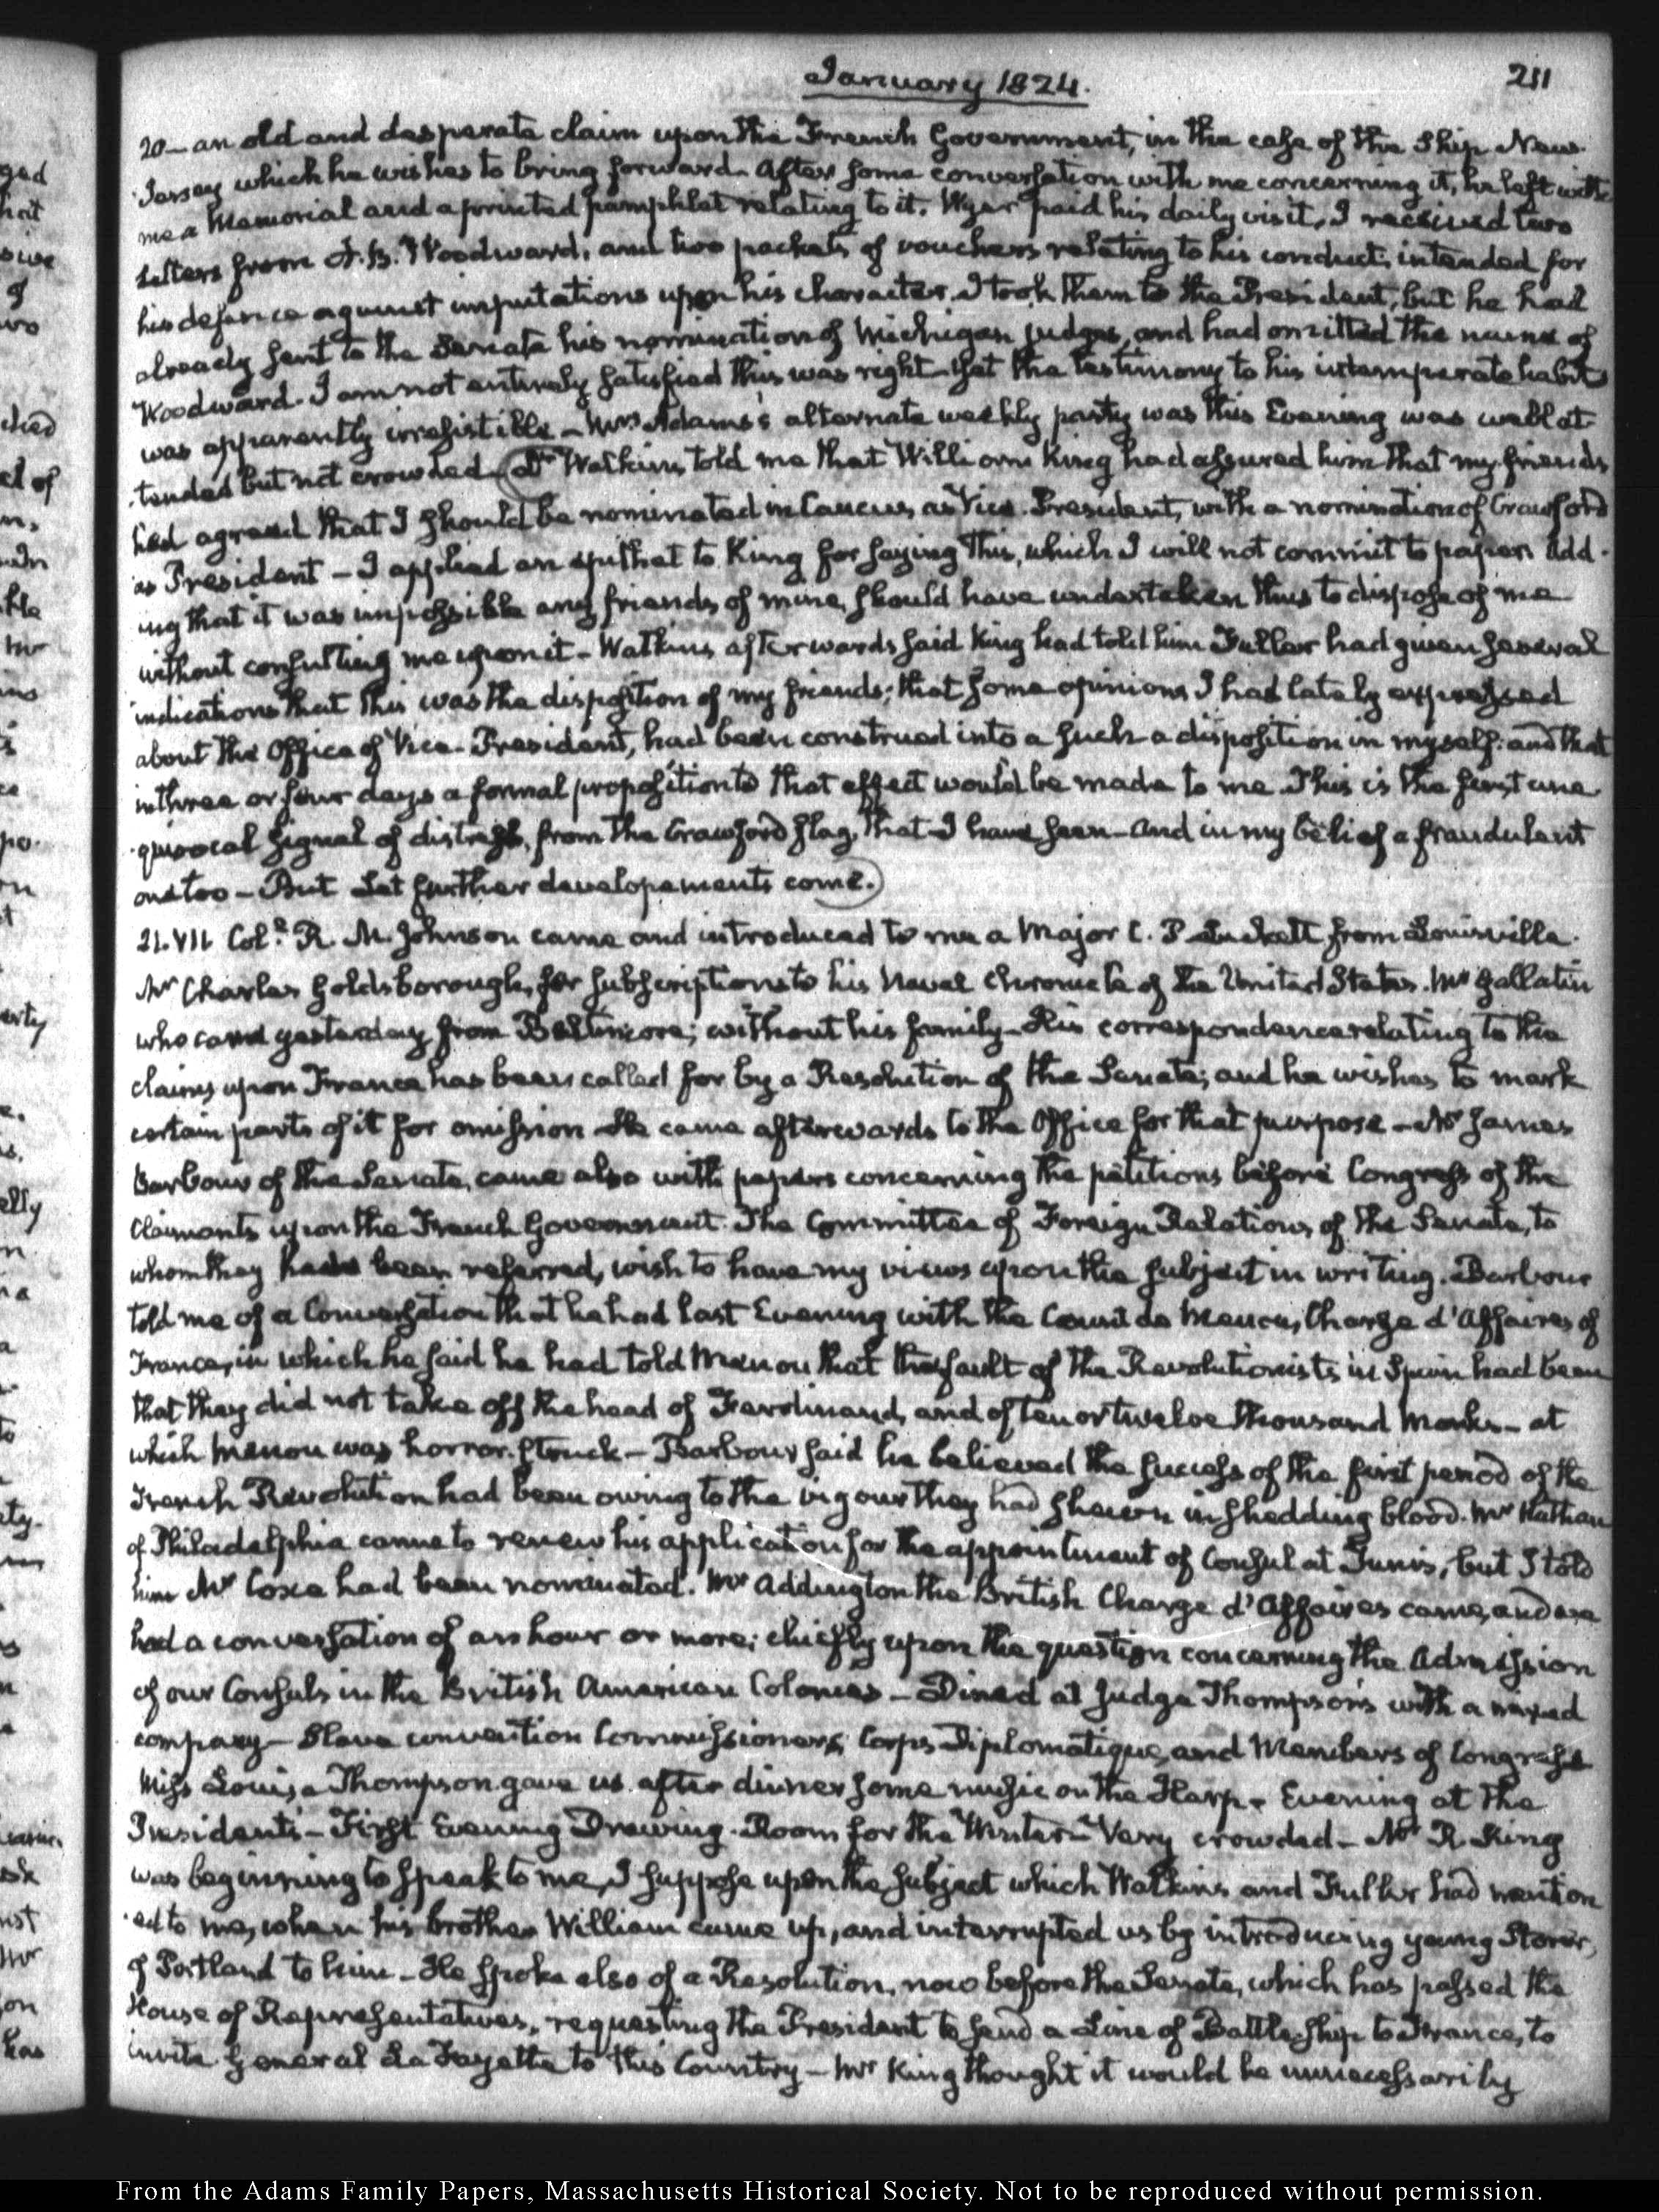 January 1824.
211
20 – an old and desperate claim upon the French Government, in the case of the Ship New-
Jersey which he wishes to bring forward. After some conversation with me concerning it, he left with
me a Memorial and a printed pamphlet relating to it. Wyer paid his daily visit. I received two
Letters from A. B. Woodward, and two packets of vouchers relating to his conduct, intended for
his defence against imputations upon his character. I took them to the President, but he had
already sent to the Senate his nomination of Michigan judges, and had omitted the name of
Woodward. I am not entirely satisfied this was right. Yet the testimony to his intemperate habits
was apparently irresistible – Mrs. Adams's alternate weekly party was this Evening was well at-
tended but not crowded. Dr. Watkins told me that William King had assured him that my friends
had agreed that I should be nominated in Caucus, as Vice-President, with a nomination of Crawford
as President – I applied an epithet to King for saying this, which I will not commit to paper. Add-
ing that it was impossible any friends of mine, should have undertaken thus to dispose of me
without consulting me upon it – Watkins, afterwards said King had told him Fuller had given several
indications that this was the disposition of my friends; that some opinions I had lately expressed
about the Office of Vice-President, had been construed into a such a disposition in myself: and that
in three or four days a formal proposition to that effect would be made to me. This is the first une-
quivocal signal of distress, from the Crawford flag, that I have seen – And in my belief a fraudulent
one too – But let further developements come.
21. VII. Coll. R. M. Johnson came and introduced to me a Major C. P. Luckett from Louisville.
Mr Charles Goldsborough, for subscriptions to his Naval Chronicle of the United States. Mr Gallatin
who came yesterday from Baltimore; without his family – His correspondence relating to the
claims upon France has been called for by a Resolution of the Senate; and he wishes to mark
certain parts of it for omission. He came afterwards to the Office for that purpose – Mr James
Barbour of the Senate, came also with papers concerning the petitions before Congress of the
Claimants upon the French Government. The Committee of Foreign Relations, of the Senate, to
whom they had been referred, wish to have my views upon the subject in writing. Barbour
told me of a Conversation that he had last Evening with the Count de Menou, Charge d'Affaires of
France, in which he said he had told Menou that the fault of the Revolutionists in Spain had been
that they did not take off the head of Ferdinand, and of ten or twelve thousand Monks – at
which Menou was horror-struck – Barbour said he believed the success of the first period of the
French Revolution had been owing to the vigour they had shewn in shedding blood. Mr Nathan
of Philadelphia came to renew his application for the appointment of Consul at Tunis, but I told
him Mr Coxe had been nominated. Mr Addington the British Charge d'Affaires came, and we
had a conversation of an hour or more; chiefly upon the question concerning the Admission
of our Consuls in the British American Colonies – Dined at Judge Thompson's with a mixed
company – Slave convention Commissioners; Corps Diplomatique, and Members of Congress
Miss Louisa Thompson gave us after dinner some music on the Harp. Evening at the
President's – First Evening Drawing-Room for the Winter – Very crowded – Mr R. King
was beginning to speak to me, I suppose upon the subject which Watkins and Fuller had mention-
ed to me, when his brother William came up, and interrupted us by introducing young Storer,
of Portland to him – He spoke also of a Resolution, now before the Senate, which has passed the
House of Representatives, requesting the President to send a Line of Battle-Ship to France, to
invite General La Fayette to this Country – Mr King thought it would be unnecessarily
From the Adams Family Papers, Massachusetts Historical Society. Not to be reproduced without permission.